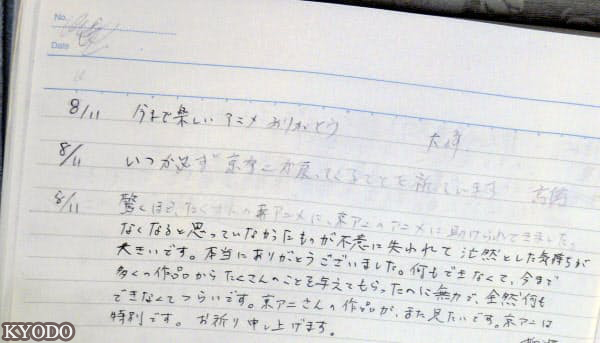 No.
Date
8/11 今まで楽しいアニメありがとう
大峰
8/11 いつか必ず京アニが戻ってくることを祈っています
8/11 驚くほど、たくさんの京アニメに、京アニのアニメに助けられてきました。
なくなると思っていなかったものが不意に失われて茫然とした気持ちが
大きいです。本当にありがとうございました。何もできなくて、今まで
多くの作品からたくさんのことを与えてもらったのに無力で、全然何も
できなくてつらいです。京アニさんの作品が、また見たいです。京アニは
特別です。お祈り申し上げます。
KYODO